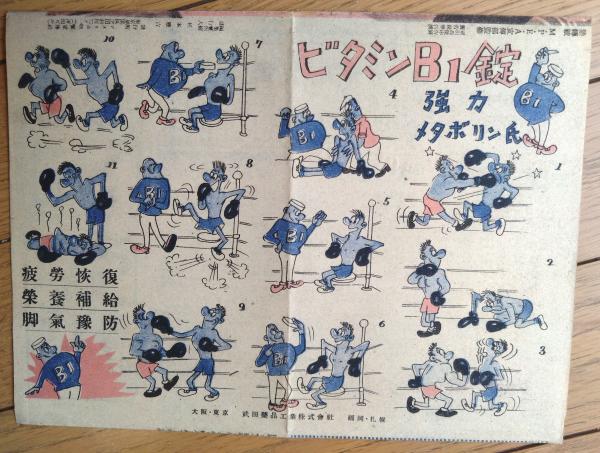 ビタミンB1錠
強力
メタボリン氏
B1
1
2
3
4
B1
5
B1
6
B1
7
B1
8
B1
9
10
11
疲勞恢復
榮養補給
脚氣豫防
B1
大阪・東京 武田藥品工業株式會社 福岡・札幌